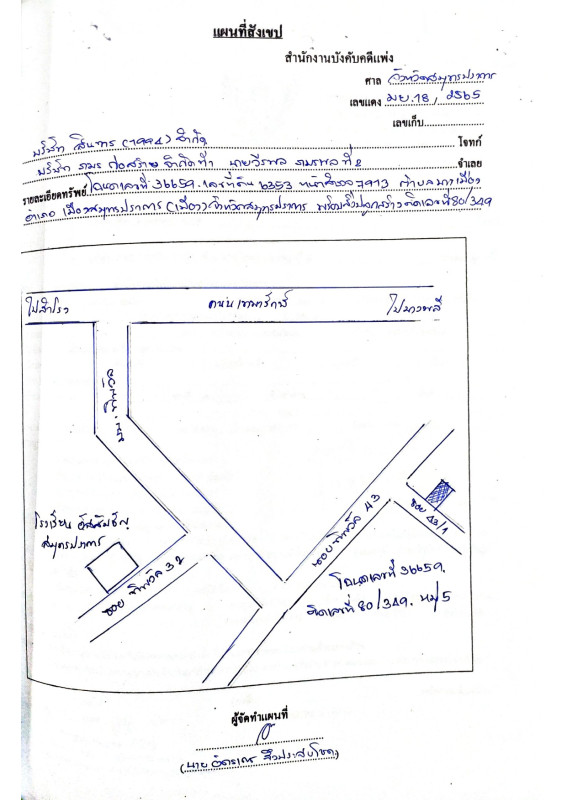 แผนที่สังเขป
สำนักงานบังคับคดีแพ่ง
ศาล จังหวัดสมุทรปราการ
เลขแดง มย.18/2565
เลขเก็บ
บริษัท สินทร (1994) จำกัด โจทก์
บริษัท จำกัด นายวีรพล ที่ 2 จำเลย
รายละเอียดทรัพย์ โฉนดเลขที่ 36659 เลขที่ดิน 6353 หน้าสำรวจ 7913 ตำบลบางเมือง
อำเภอ เมืองสมุทรปราการ (เมือง) จังหวัดสมุทรปราการ พร้อมสิ่งปลูกสร้างติดเลขที่ 80/349
ไปสำโรง
ถนน เทพารักษ์
ไปบางพลี
โรงเรียน อัสสัมชัญ
สมุทรปราการ
ซอย ทิพวัล 32
ซอย ทิพวัล 43
ซอย 43/1
โฉนดเลขที่ 36659
ติดเลขที่ 80/349 หมู่ 5
ผู้จัดทำแผนที่